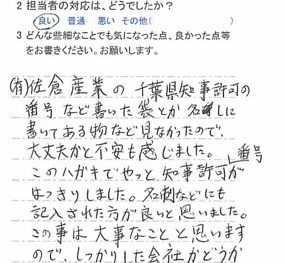 2 担当者の対応は、どうでしたか?
良い 普通 悪い その他(
3 どんな些細なことでも気になった点、良かった点等
をお書きください。お願いします。
(有)佐倉産業の千葉県知事許可の
番号など書いた袋とか名刺に
書いてある物など見なかったので、
大丈夫かと不安も感じました。
番号
このハガキでやっと知事許可が
はっきりしました。名刺などにも
記入された方が良いと思いました。
この事は大事なことと思います
ので、しっかりした会社かどうか